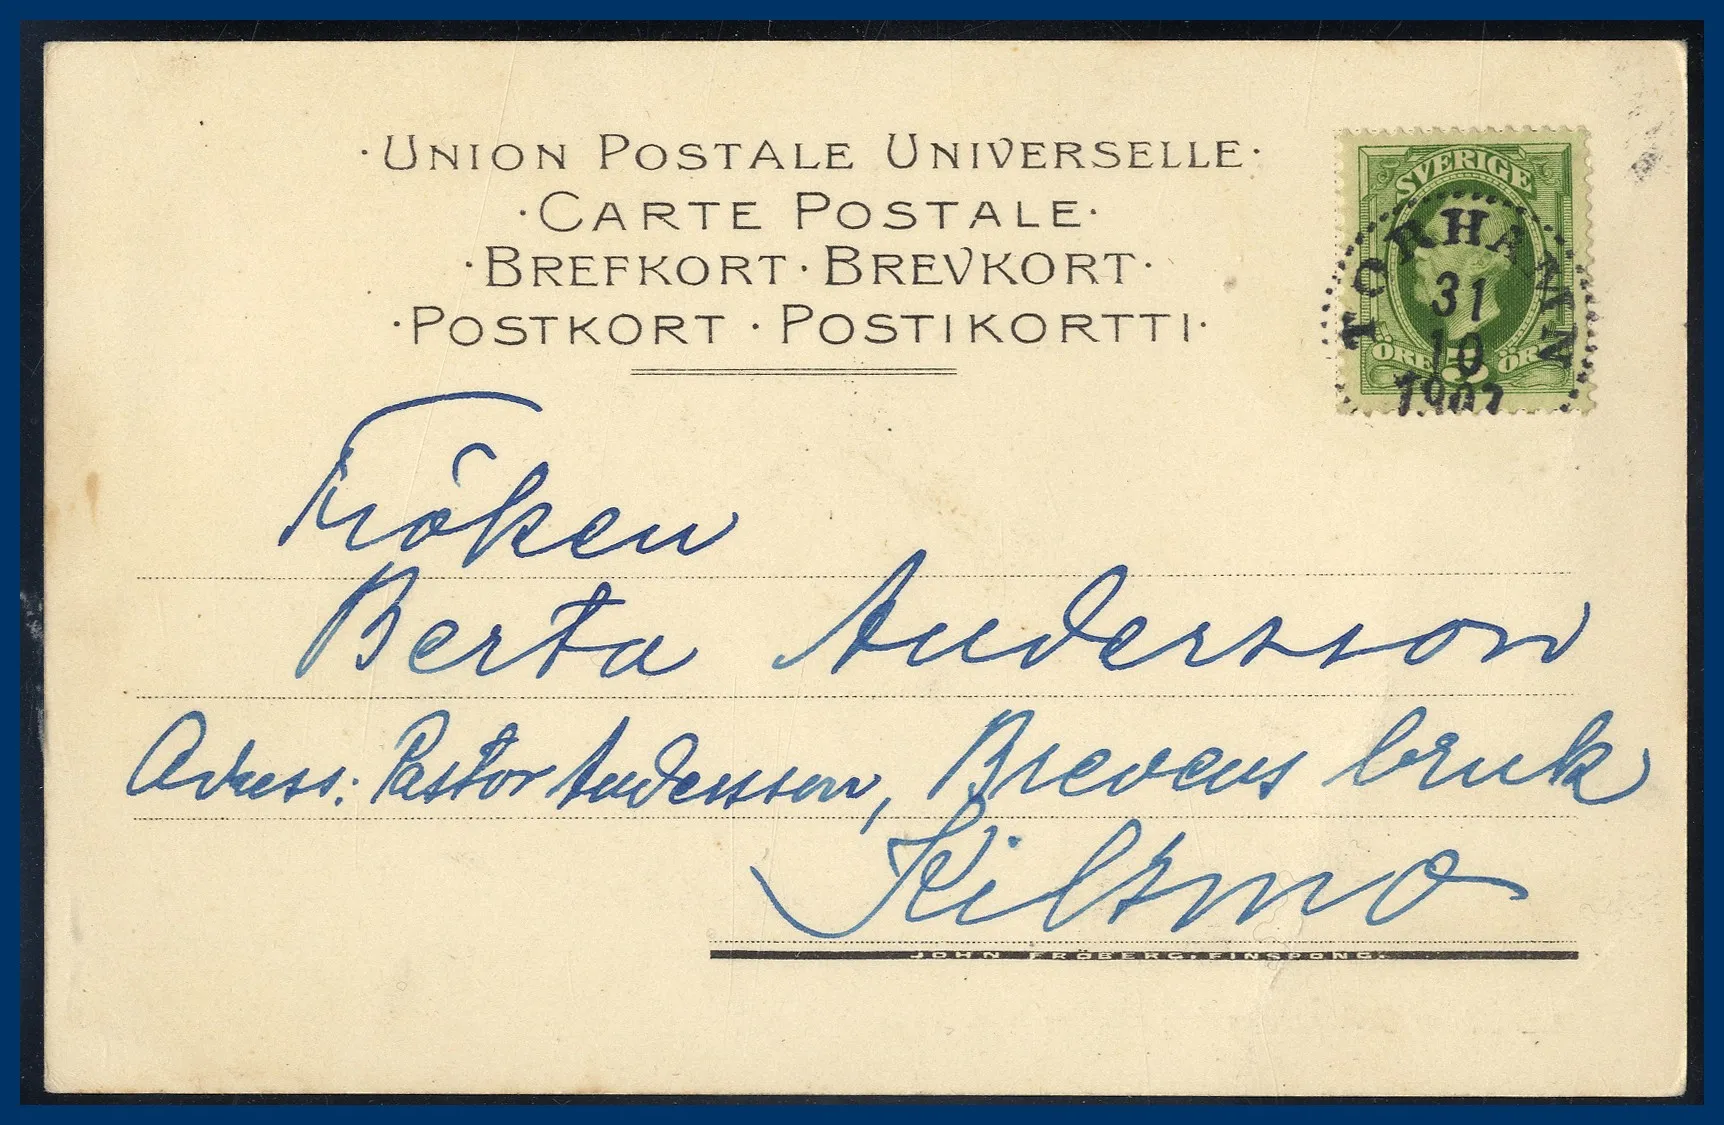 · UNION POSTALE UNIVERSELLE ·
· CARTE POSTALE ·
· BREFKORT · BREVKORT ·
· POSTKORT · POSTIKORTTI ·
SVERIGE
TORHAMN
31
10
1902
ÖRE 5 ÖRE
Fröken
Berta Andersson
Adress: Pastor Andersson, Brevens bruk
Kilsmo
JOHN FRÖBERG, FINSPONG.